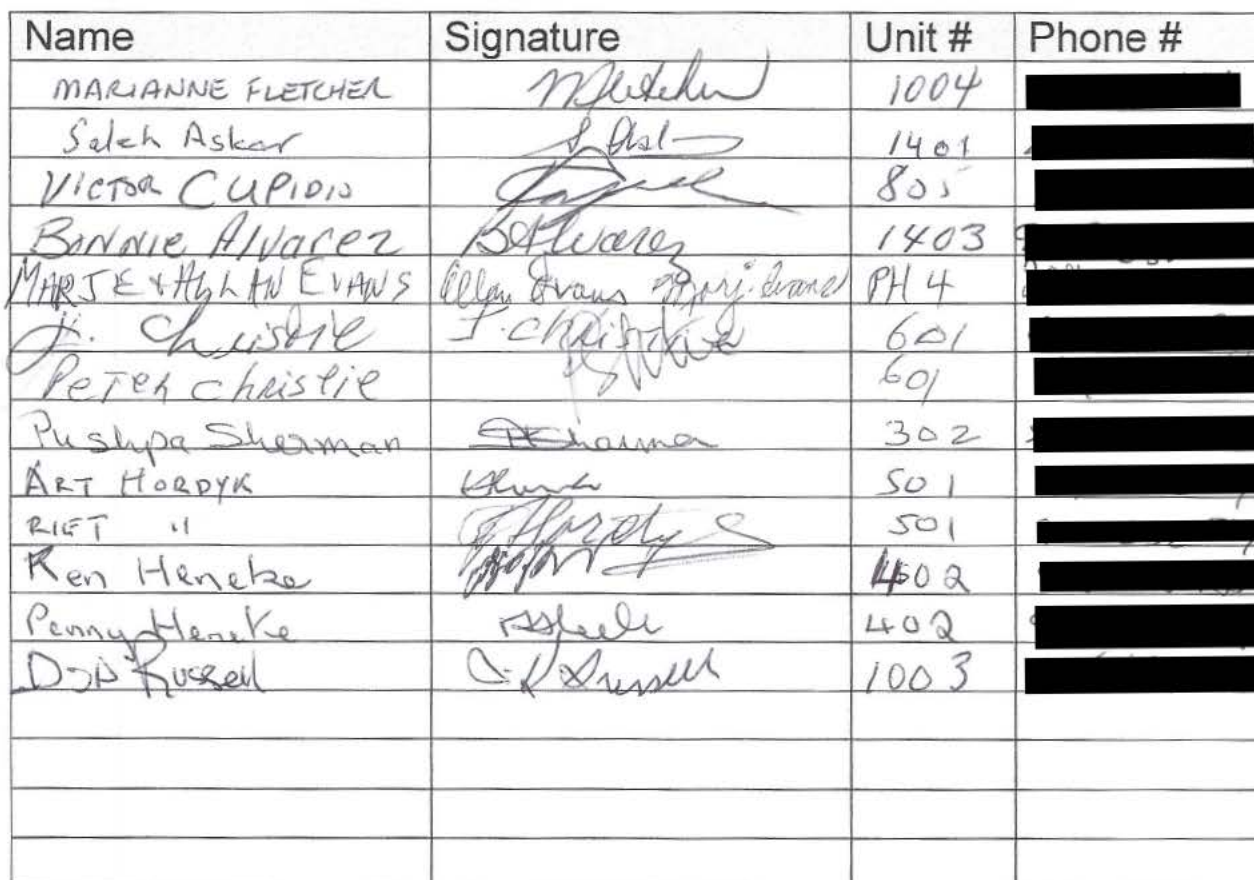 Name Signature Unit # Phone #
MARIANNE FLETCHER MFletcher 1004
Saleh Askar 1401
VICTOR CUPIDIO 805
BONNIE Alvarez BAlvarez 1403
MARJE & ALLAN EVANS Allan Evans Marj. Evans PH 4
J. Christie J. Christie 601
PETER Christie 601
Pushpa Sherman 302
ART HORDYK 501
RIET " 501
Ken Heneke 402
Penny Heneke 402
Don Russell 1003